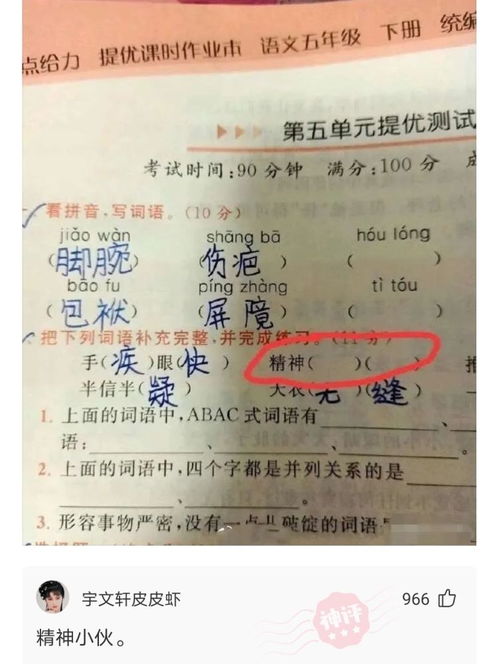 点给力 提优课时作业本 语文五年级 下册 统编
第五单元提优测试
考试时间:90分钟 满分:100分
看拼音,写词语。(10分)
jiǎo wàn shāng bā hóu lóng
(脚腕) (伤疤) ( )
bāo fu píng zhàng tì tóu
(包袱) (屏障) ( )
把下列词语补充完整,并完成练习。(11分)
手(疾)眼(快) 精神( )( )
半信半(疑) 天衣(无)(缝)
1. 上面的词语中,ABAC式词语有
语:、、
2. 上面的词语中,四个字都是并列关系的是
、、
3. 形容事物严密,没有一点儿破绽的词语
宇文轩皮皮虾 966
神评
精神小伙。